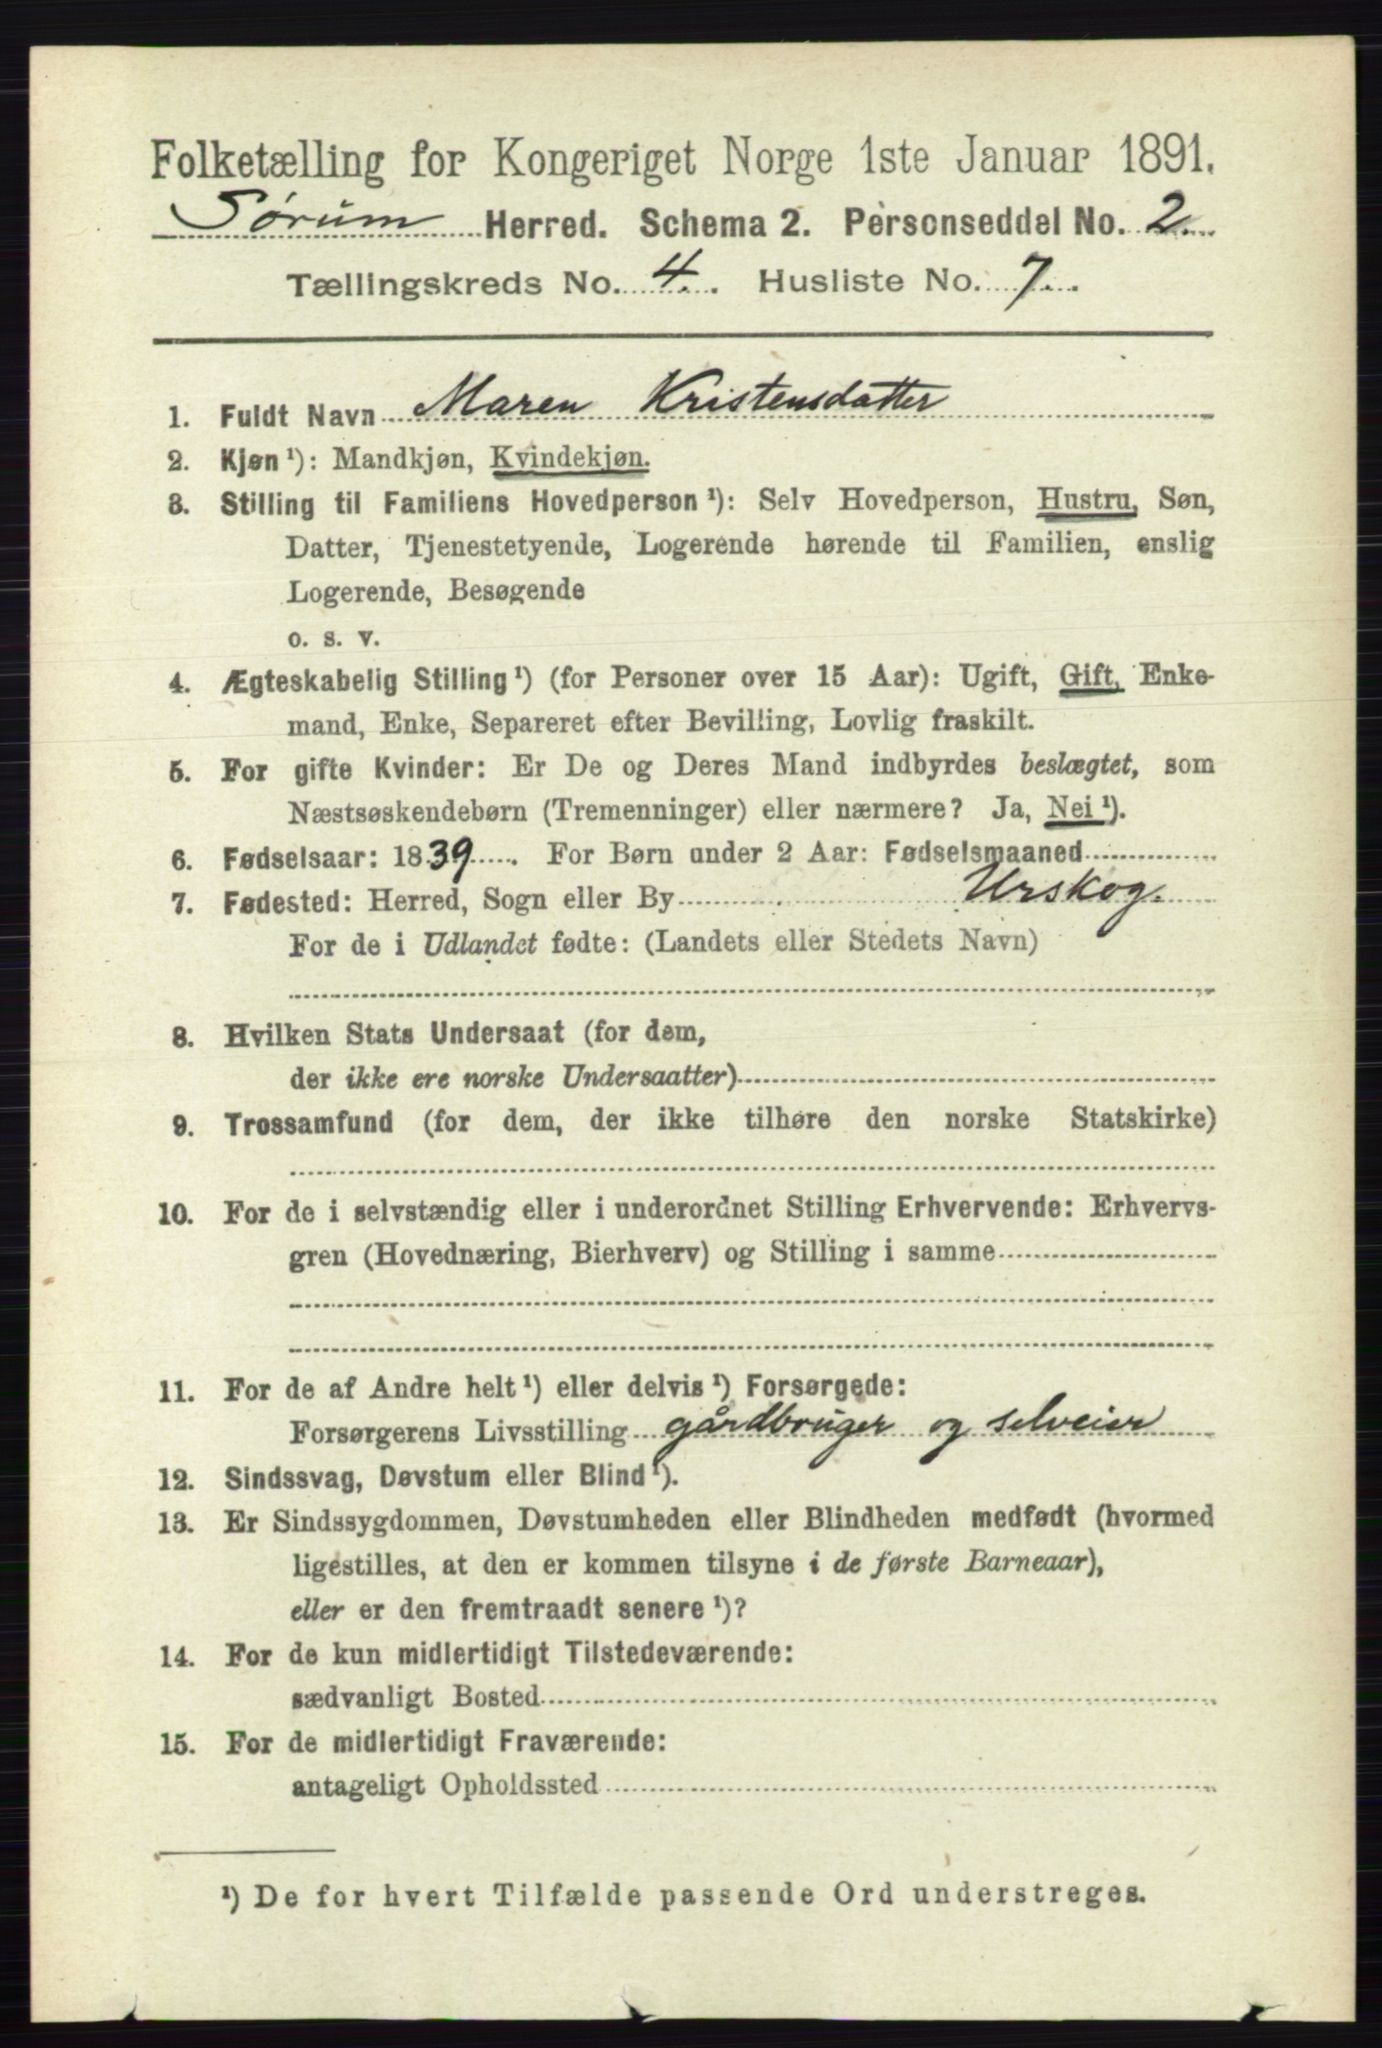 Folketælling for Kongeriget Norge 1ste Januar 1891.
Sørum Herred. Schema 2. Personseddel No. 2.
Tællingskreds No. 4. Husliste No. 7.
1. Fuldt Navn Maren Kristensdatter
2. Kjøn ¹): Mandkjøn, Kvindekjøn.
3. Stilling til Familiens Hovedperson ¹): Selv Hovedperson, Hustru, Søn,
Datter, Tjenestetyende, Logerende hørende til Familien, enslig
Logerende, Besøgende
o. s. v.
4. Ægteskabelig Stilling ¹) (for Personer over 15 Aar): Ugift, Gift, Enke-
mand, Enke, Separeret efter Bevilling, Lovlig fraskilt.
5. For gifte Kvinder: Er De og Deres Mand indbyrdes beslægtet, som
Næstsøskendebørn (Tremenninger) eller nærmere? Ja, Nei ¹).
6. Fødselsaar: 1839. For Børn under 2 Aar: Fødselsmaaned
7. Fødested: Herred, Sogn eller By Urskog.
For de i Udlandet fødte: (Landets eller Stedets Navn)
8. Hvilken Stats Undersaat (for dem,
der ikke ere norske Undersaatter)
9. Trossamfund (for dem, der ikke tilhøre den norske Statskirke)
10. For de i selvstændig eller i underordnet Stilling Erhvervende: Erhvervs-
gren (Hovednæring, Bierhverv) og Stilling i samme
11. For de af Andre helt ¹) eller delvis ¹) Forsørgede:
Forsørgerens Livsstilling gårdbruger og selveier
12. Sindssvag, Døvstum eller Blind ¹).
13. Er Sindssygdommen, Døvstumheden eller Blindheden medfødt (hvormed
ligestilles, at den er kommen tilsyne i de første Barneaar),
eller er den fremtraadt senere ¹)?
14. For de kun midlertidigt Tilstedeværende:
sædvanligt Bosted
15. For de midlertidigt Fraværende:
antageligt Opholdssted
¹) De for hvert Tilfælde passende Ord understreges.